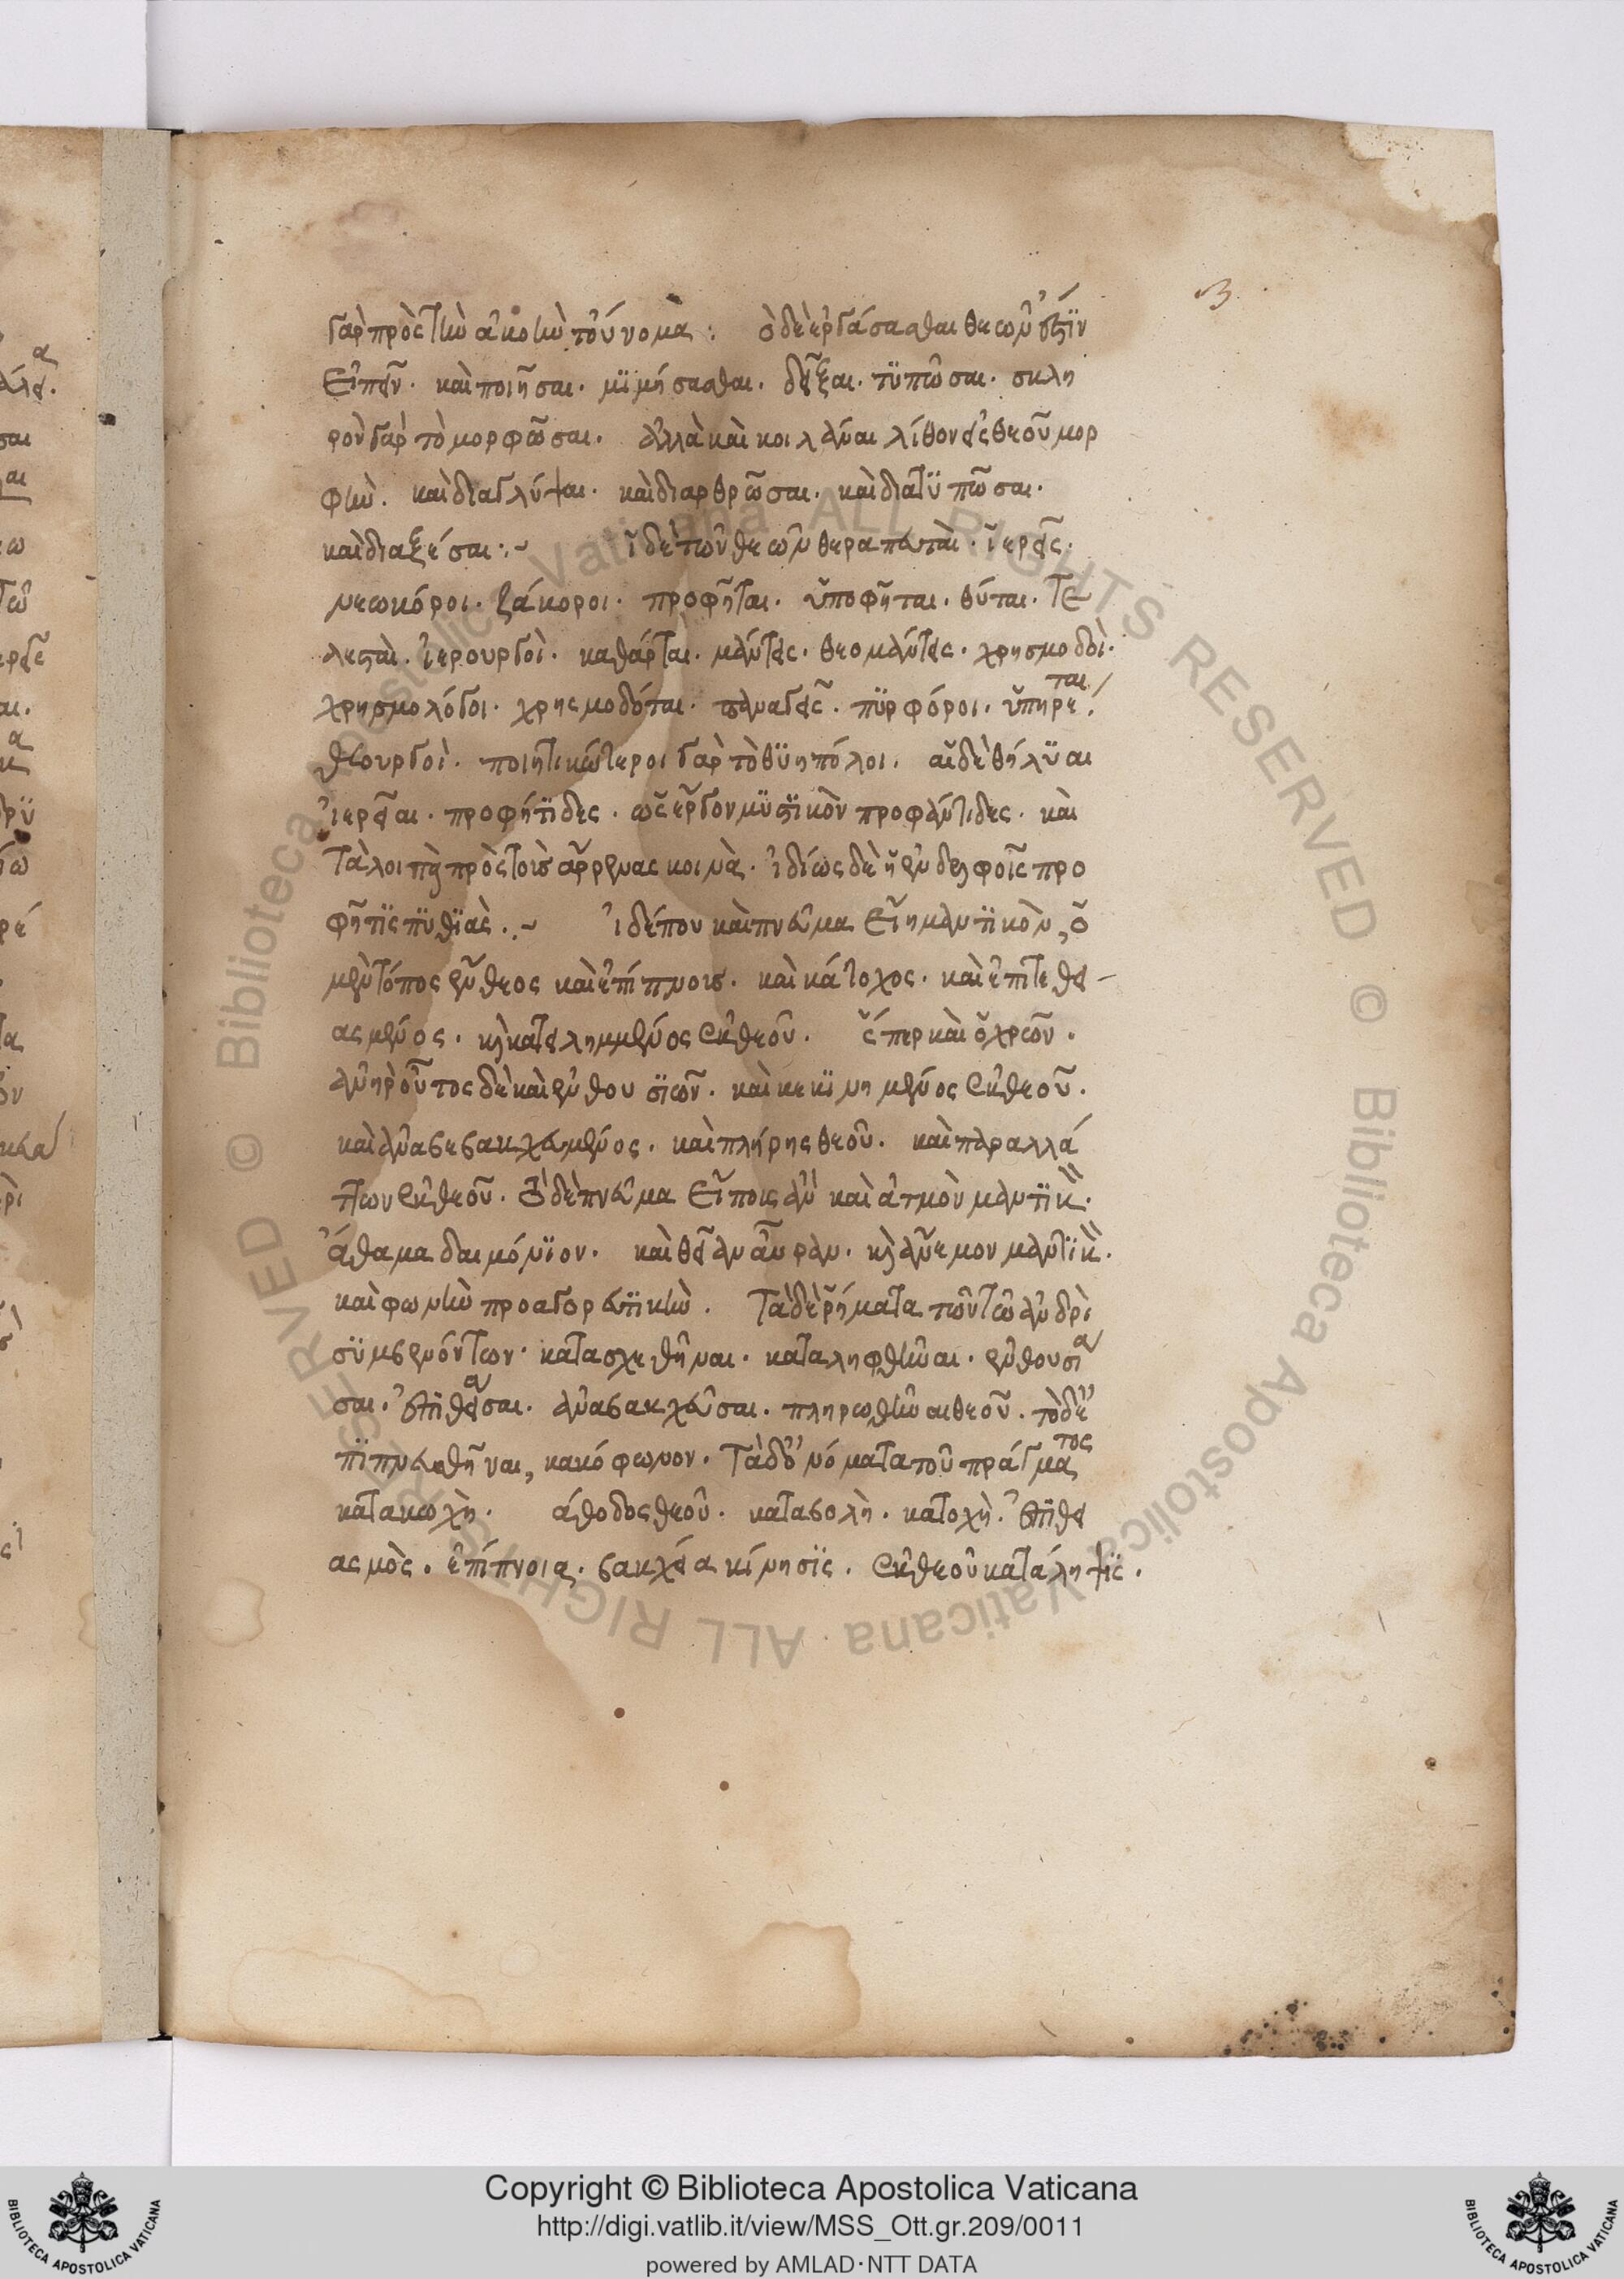 γὰρ πρὸς τὴν ἀκοὴν τοὔνομα : ὁ δὲ ἐργάσασθαι θεῶν ἔστιν
εἰπεῖν. καὶ ποιῆσαι. μϊμήσασθαι. δεῖξαι. τϋπῶσαι. σκλη
ρὸν γὰρ τὸ μορφῶσαι. ἀλλὰ καὶ κοιλᾶναι λίθον εἰς θεοῦ μορ
φὴν. καὶ διαγλύψαι. καὶ διαρθρῶσαι. καὶ διατϋπῶσαι.
καὶ διαξέσαι :~ ἱ δὲ τῶν θεῶν θεραπευταὶ. ἱερεῖς.
νεωκόροι. ζάκοροι. προφῆται. ὑποφῆται. θύται. τε
λεσταὶ. ἱερουργοὶ. καθάρται. μάντεις. θεομάντεις. χρησμωδοὶ.
χρησμολόγοι. χρησμοδόται. παναγεῖς. πϋρφόροι. ὑπηρέται.
θεουργοὶ. ποιητικώτεροι γὰρ τὸ θϋηπόλοι. αἱ δὲ θήλϋαι
ἱέρειαι. προφήτϊδες. ὡς εἶργον μϋστϊκὸν προφάντιδες. καὶ
τὰ λοιπὰ πρὸς τοὺς ἄρρενας κοινὰ. ἰδίως δὲ ἡ ἐν δελφοῖς προ
φῆτϊς πϋθϊὰς .~ ἰ δέ που καὶ πνεῦμα εἴη μαντϊκὸν, ὁ
μὲν τόπος ἔνθεος καὶ ἐπίπνους. καὶ κάτοχος. καὶ ἐπιτεθει
ασμένος. καὶ κατειλημμένος ἐκ θεοῦ. ὥσπερ καὶ ὁ χρεῶν.
ἀνὴρ οὗτος δὲ καὶ ἐνθουσϊῶν. καὶ κεκϊνημένος ἐκ θεοῦ.
καὶ ἀναβεβακχευμένος. καὶ πλήρης θεοῦ. καὶ παραλλά
ττων ἐκ θεοῦ. τὸ δὲ πνεῦμα εἴποις ἂν καὶ ἀτμὸν μαντϊκὸν.
ἄσθμα δαιμόνϊον. καὶ θείαν αὔραν. καὶ ἄνεμον μαντϊκὸν.
καὶ φωνὴν προαγορευτϊκὴν. τὰ δὲ ῥήματα τῶν τῷ ἀνδρὶ
σϋμβενόντων. κατασχεθῆναι. καταληφθῆναι. ἐνθουσιᾶ
σαι. ἐπιθειάσαι. ἀναβακχεῦσαι. πληρωθῆναι θεοῦ. τὸ δὲ ἐ
πϊπνευσθῆναι, κακόφωνον. τὰ δ' ὀνόματα τοῦ πράγματος
κατακωχὴ. ἄθοδος θεοῦ. καταβολὴ. κατοχὴ. ἐπιθει
ασμὸς. ἐπίπνοια. βακχεία κίνησϊς. ἐκ θεοῦ κατάληψϊς.
Copyright © Biblioteca Apostolica Vaticana
http://digi.vatlib.it/view/MSS_Ott.gr.209/0011
powered by AMLAD·NTT DATA
BIBLIOTECA APOSTOLICA VATICANA
BIBLIOTECA APOSTOLICA VATICANA
© Biblioteca Apostolica Vaticana ALL RIGHTS RESERVED
© Biblioteca Apostolica Vaticana ALL RIGHTS RESERVED